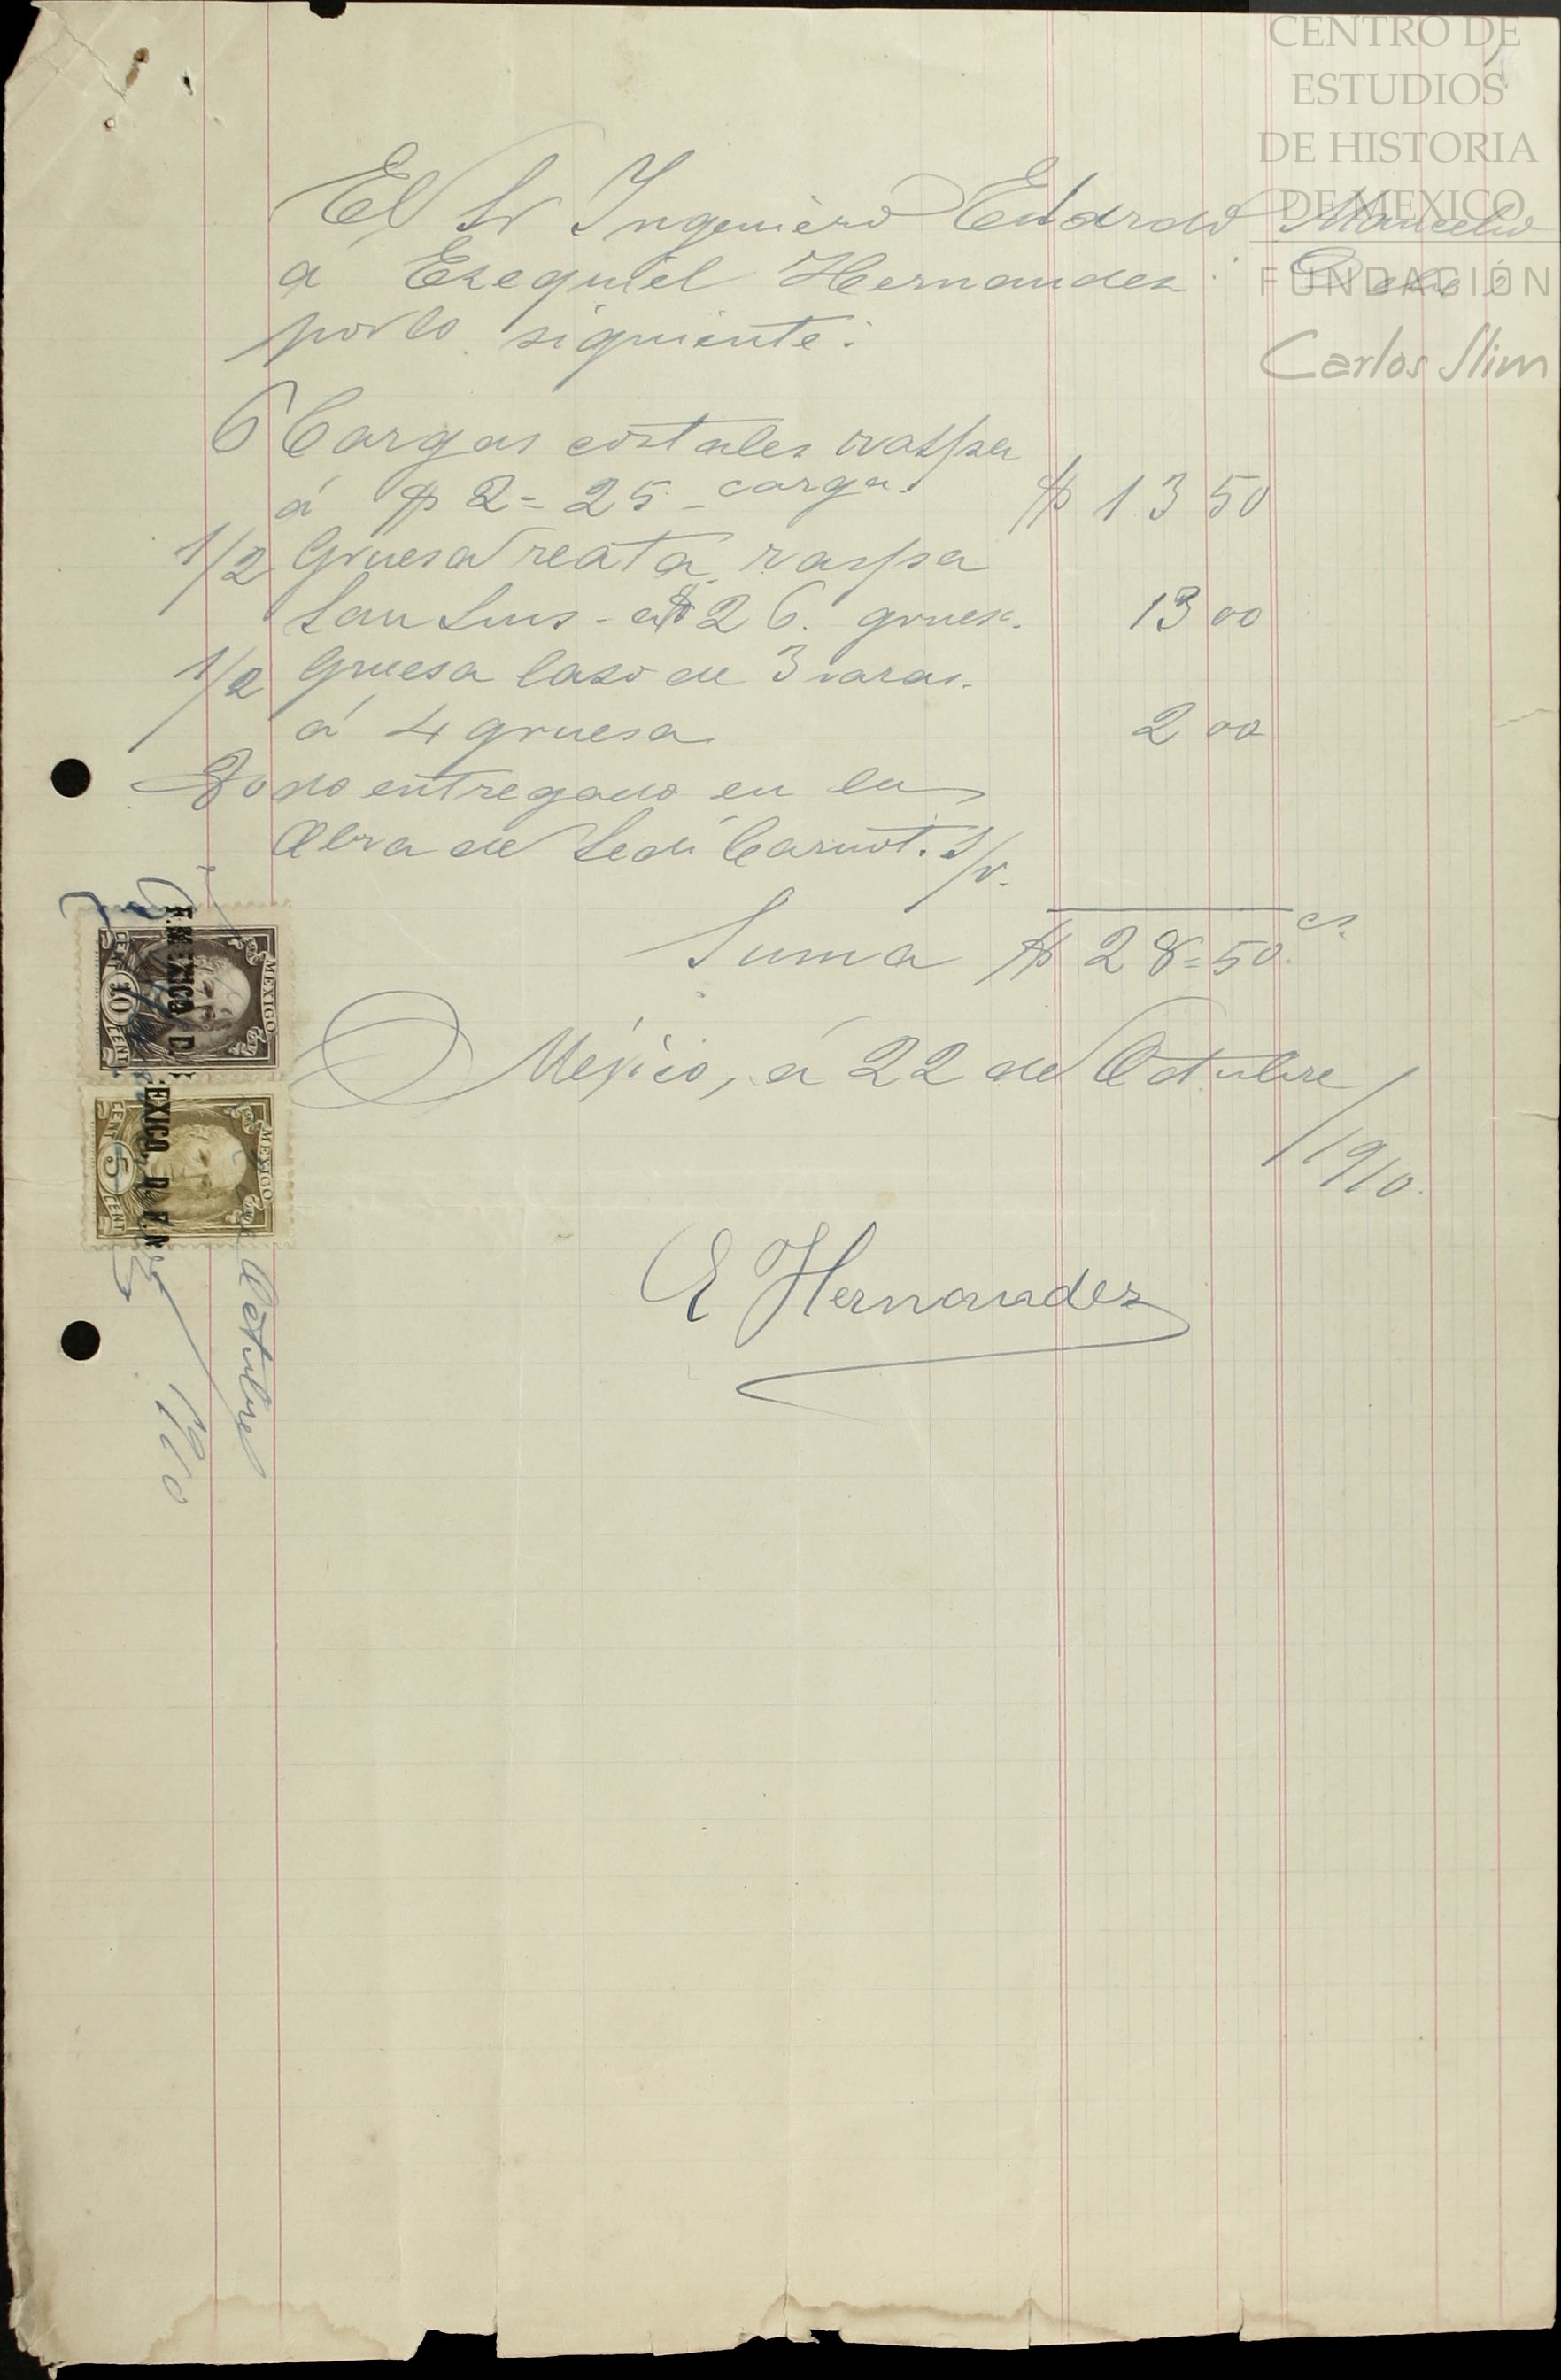 CENTRO DE
ESTUDIOS
DE HISTORIA
DE MEXICO
FUNDACIÓN
Carlos Slim
El Sr Ingeniero Edardo
a Ezequiel Hernandez Debe
por lo siguiente:
6 Cargas costales raspa
á $ 2=25 - carga. $ 13 50
1/2 Gruesa reata raspa
San Luis - a $ 26. grues. 13 00
1/2 Gruesa laso de 3 varas.
á 4 gruesa 2 00
Todo entregado en la
Obra de Sedi Carnot. S/v.
Suma $ 28=50 cs.
México, á 22 de Octubre
/1910.
E Hernandez
MEXICO
10
CENT
MEXICO
5
CENT
F. MEXICO D.
EXICO, D. F.
Octubre
1910